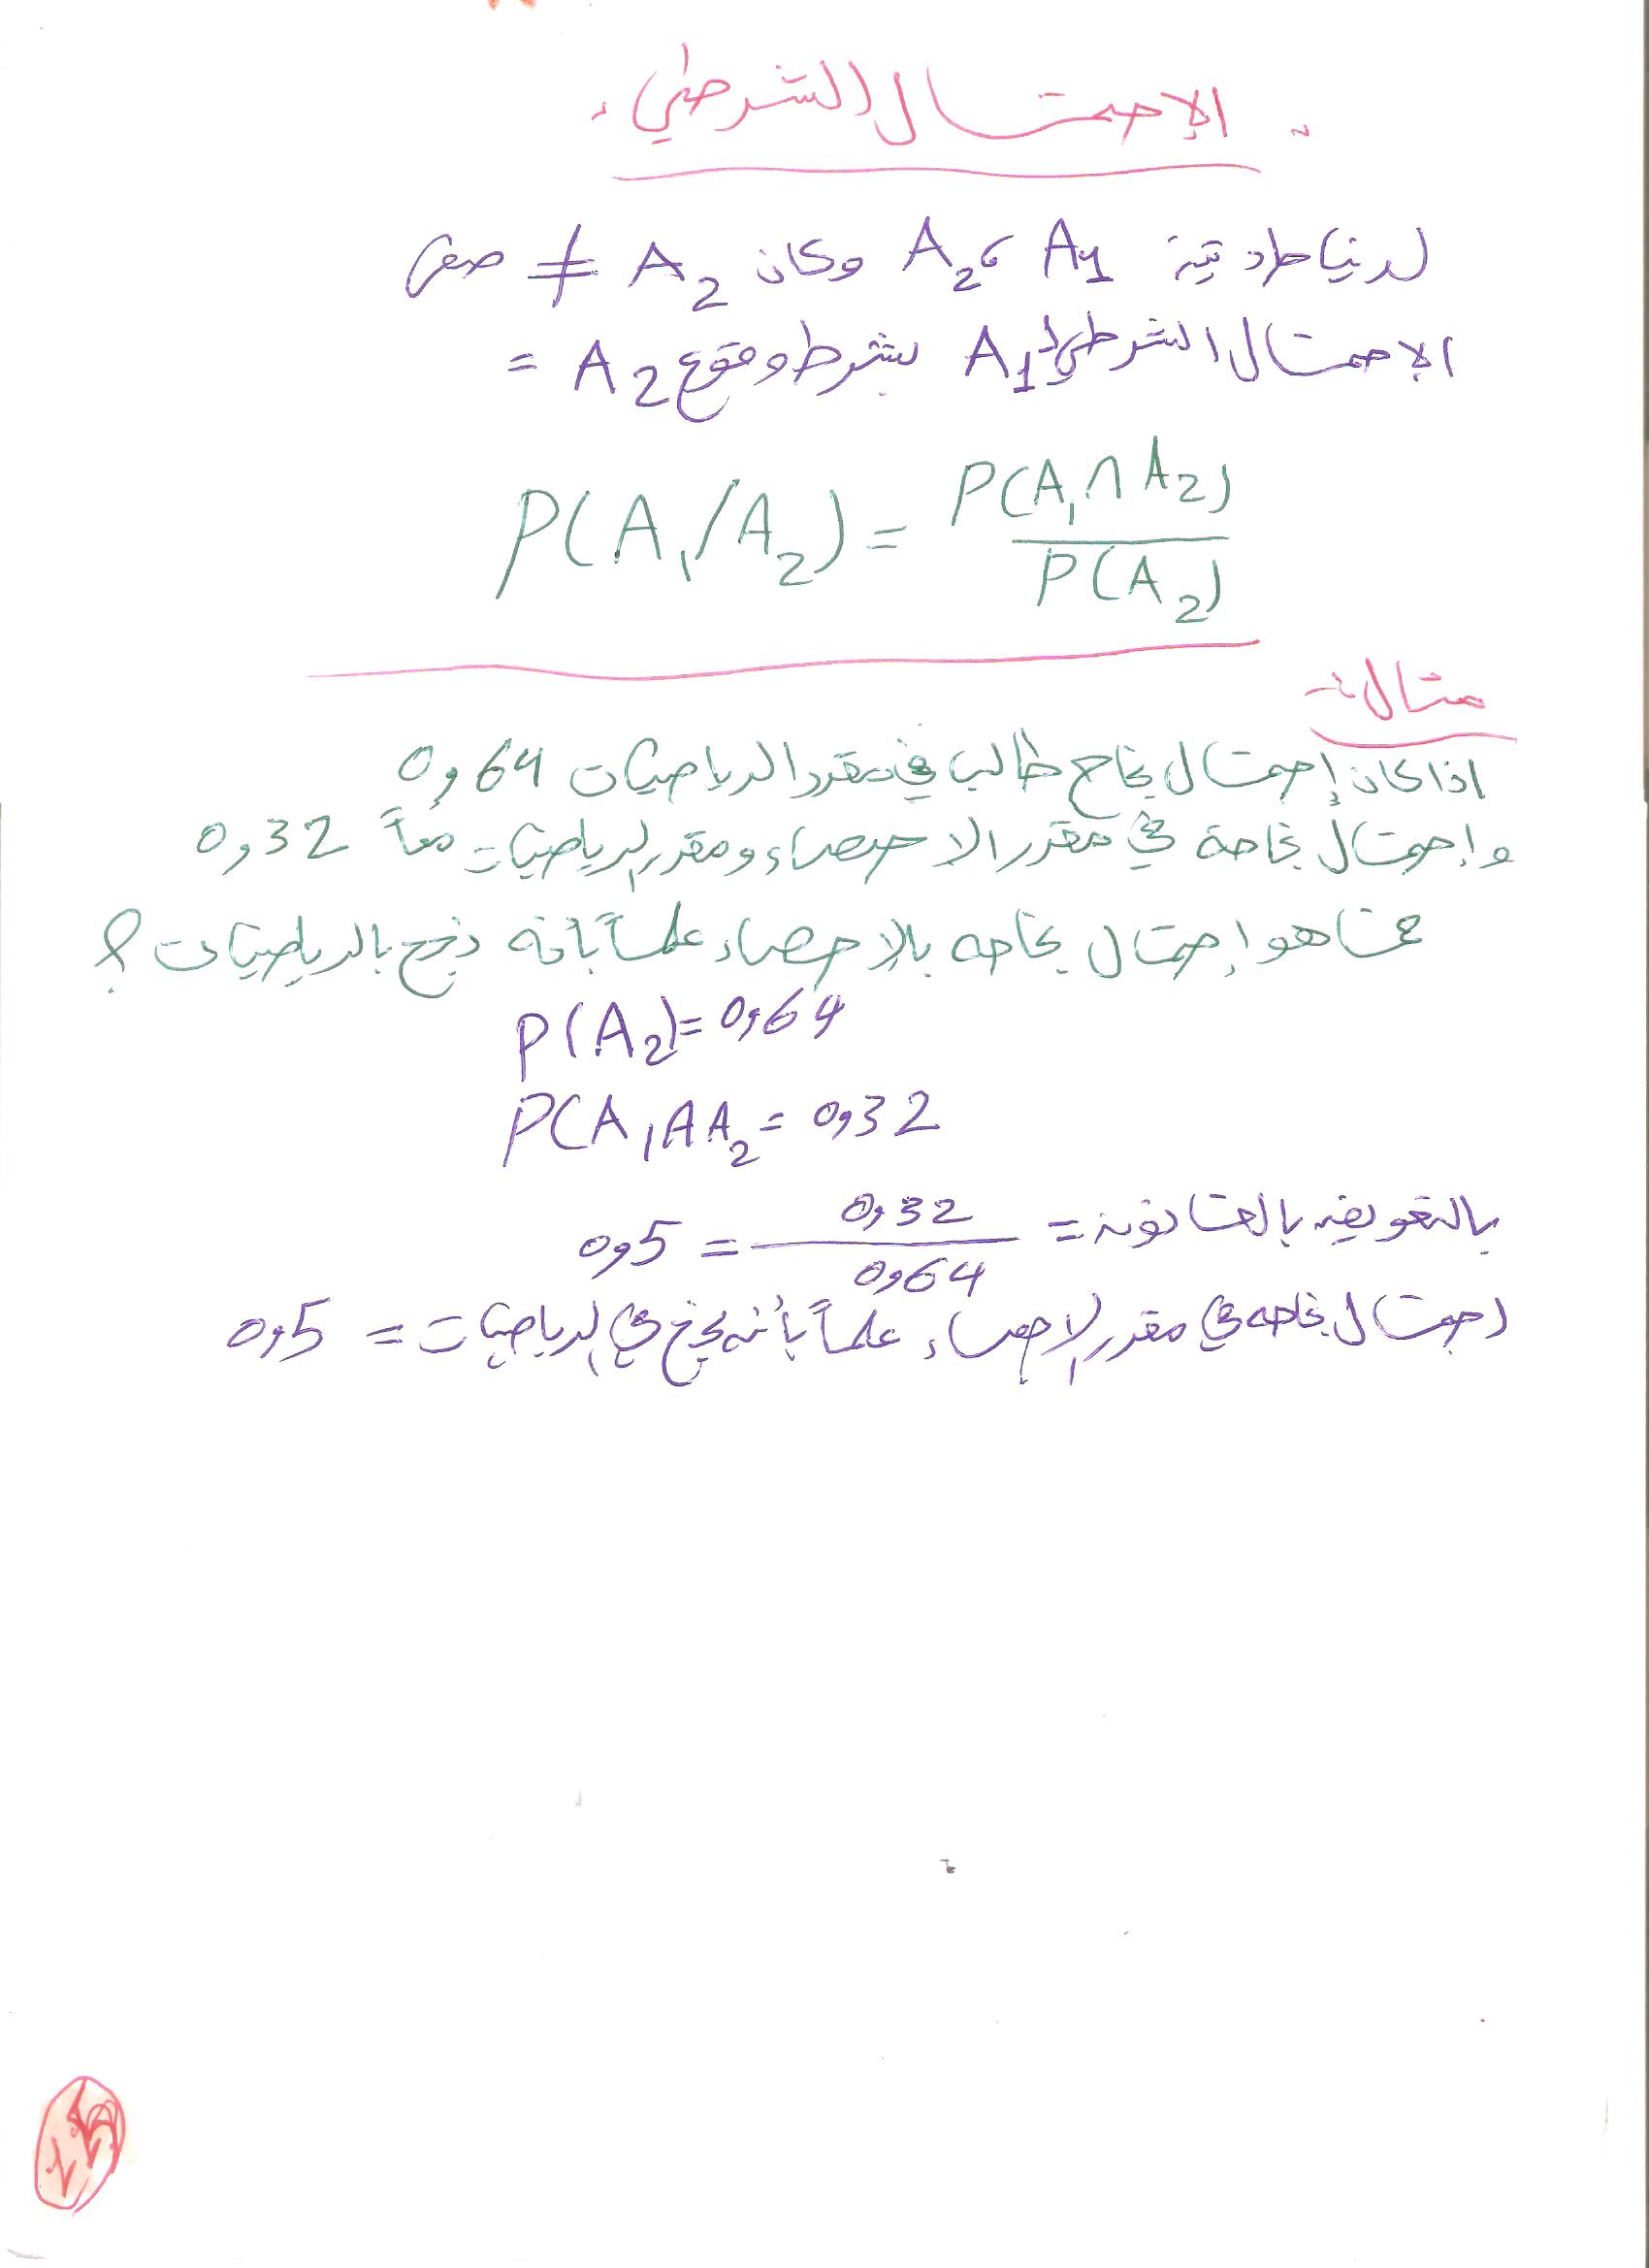 الاحتمال الشرطي
لدينا حادثين A1 ، A2 وكان A2 ≠ صفر
الاحتمال الشرطي لـ A1 بشرط وقوع A2 =
P(A1/A2) = P(A1∩A2) / P(A2)
مثال :-
اذا كان إحتمال نجاح طالب في مقرر الرياضيات 0,64
و إحتمال نجاحة في مقرر الاحصاء ومقرر الرياضيات معاً 0,32
فما هو إحتمال نجاحه بالإحصاء علماً بانه نجح بالرياضيات ؟
P(A2)=0,64
P(A1∩A2 = 0,32
بالتعويض بالقانون = 0,32 / 0,64 = 0,5
احتمال نجاحه في مقرر الاحصاء علماً بأنه نجح في الرياضيات = 0,5